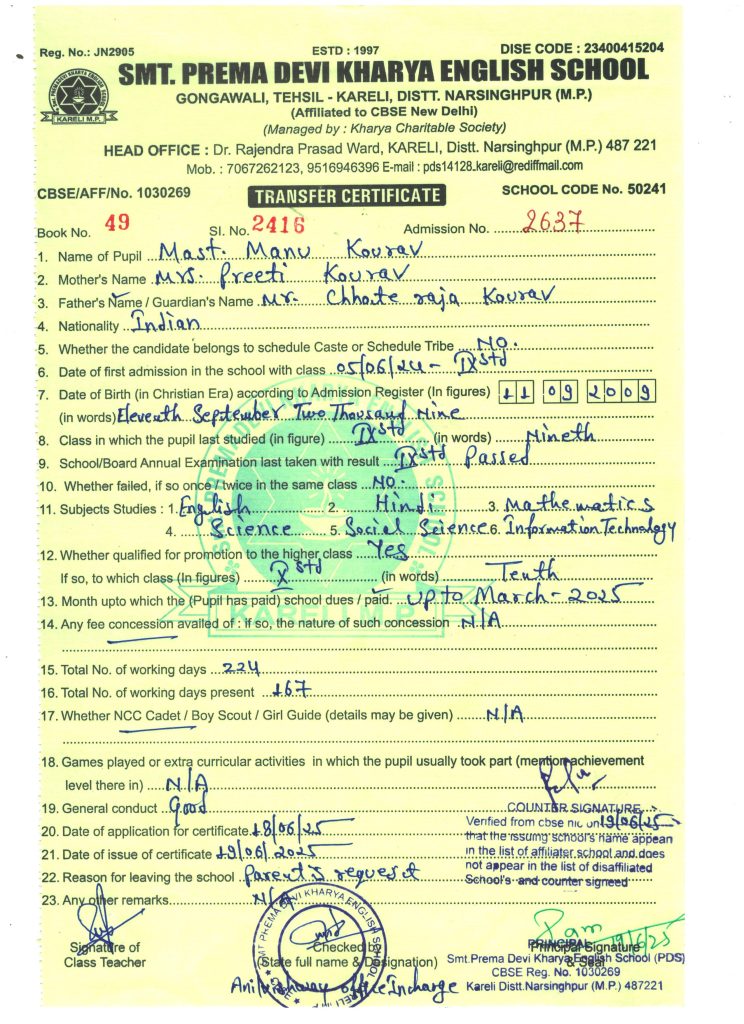 Reg. No.: JN2905 ESTD : 1997 DISE CODE : 23400415204
SMT. PREMA DEVI KHARYA ENGLISH SCHOOL
GONGAWALI, TEHSIL - KARELI, DISTT. NARSINGHPUR (M.P.)
(Affiliated to CBSE New Delhi)
(Managed by : Kharya Charitable Society)
KARELI M.P.
HEAD OFFICE : Dr. Rajendra Prasad Ward, KARELI, Distt. Narsinghpur (M.P.) 487 221
Mob. : 7067262123, 9516946396 E-mail : pds14128_kareli@rediffmail.com
CBSE/AFF/No. 1030269 TRANSFER CERTIFICATE SCHOOL CODE No. 50241
Book No. 49 Sl. No. 2416 Admission No. 2637
1. Name of Pupil Mast. Manu Kourav
2. Mother's Name Mrs. Preeti Kourav
3. Father's Name / Guardian's Name Mr. Chhote raja Kourav
4. Nationality Indian
5. Whether the candidate belongs to schedule Caste or Schedule Tribe NO.
6. Date of first admission in the school with class 05/06/24 - IX std
7. Date of Birth (in Christian Era) according to Admission Register (In figures) 11 09 2009
(in words) Eleventh September Two Thousand Nine
8. Class in which the pupil last studied (in figure) IX std (in words) Nineth
9. School/Board Annual Examination last taken with result IX std Passed
10. Whether failed, if so once / twice in the same class NO.
11. Subjects Studies : 1. English 2. Hindi 3. Mathematics
4. Science 5. Social Science 6. Information Technology
12. Whether qualified for promotion to the higher class Yes
If so, to which class (In figures) X std (in words) Tenth
13. Month upto which the (Pupil has paid) school dues / paid. Up to March - 2025
KARELI M.P.
14. Any fee concession availed of : if so, the nature of such concession N/A
15. Total No. of working days 224
16. Total No. of working days present 167
17. Whether NCC Cadet / Boy Scout / Girl Guide (details may be given) N/A
18. Games played or extra curricular activities in which the pupil usually took part (mention achievement
level there in) N/A
19. General conduct Good
COUNTER SIGNATURE
20. Date of application for certificate 18/06/25
Verified from cbse nic on 19/06/25
that the issuing school's name appear
21. Date of issue of certificate 19/06/2025
in the list of affiliater school and does
not appear in the list of disaffiliated
22. Reason for leaving the school Parent's request
School's and counter signeed
23. Any other remarks N/A
SMT. PREMA DEVI KHARYA ENGLISH SCHOOL
19/6/25
Signature of Checked by PRINCIPAL Principal Signature
Class Teacher (State full name & Designation) & Seal
Smt.Prema Devi Kharya English School (PDS)
CBSE Reg. No. 1030269
office Incharge Kareli Distt.Narsinghpur (M.P.) 487221